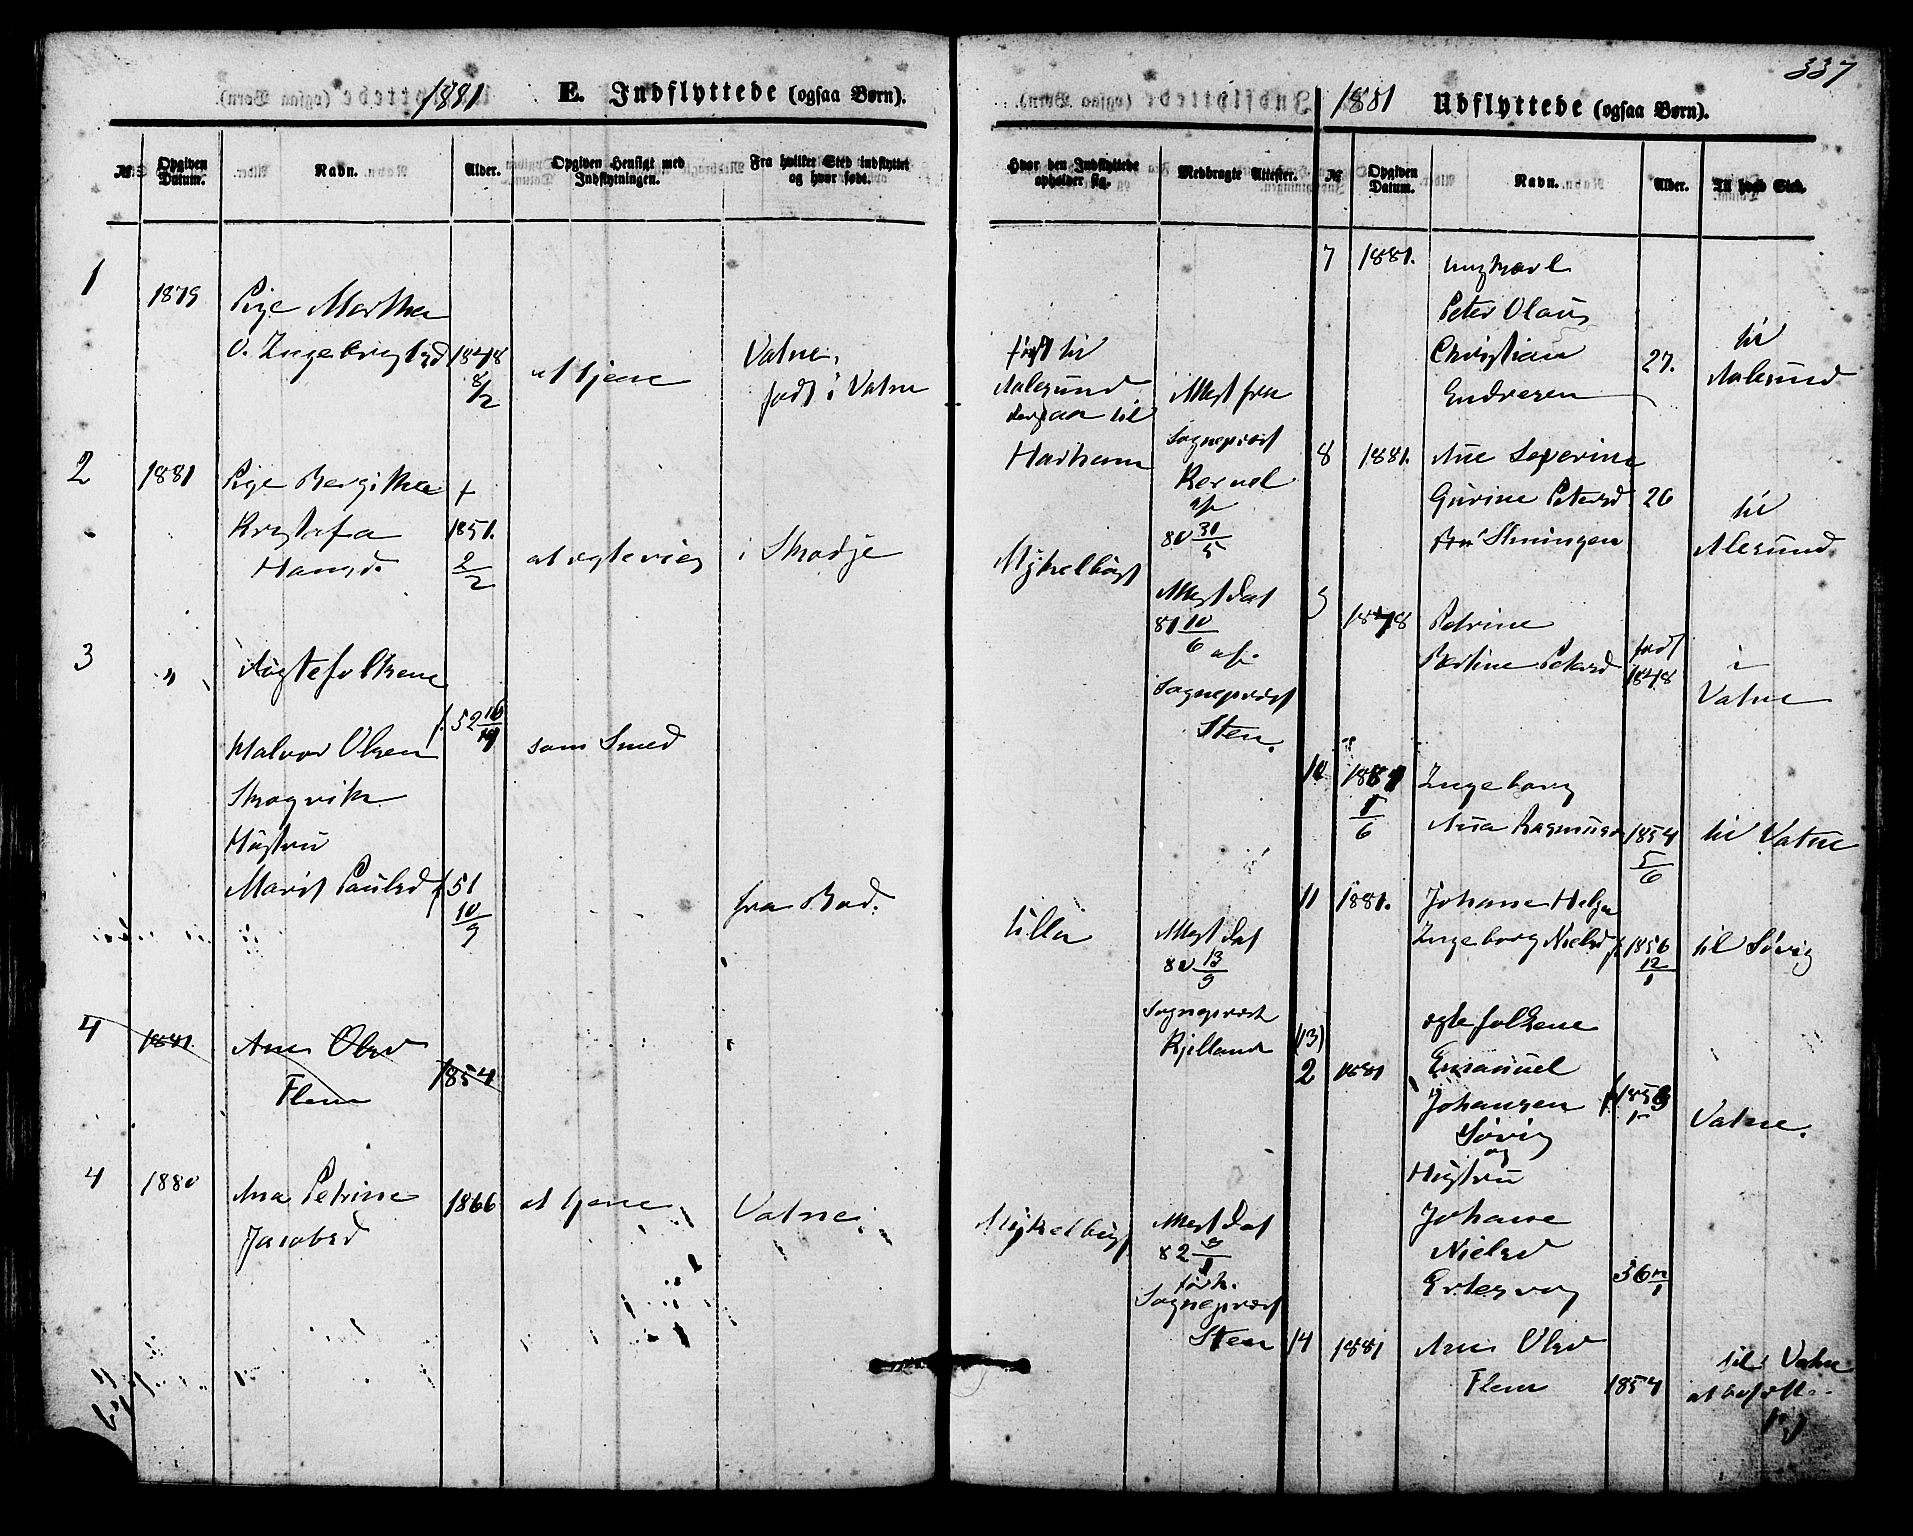 337
1881
E. Indflyttede (ogsaa Børn).
1881
Udflyttede (ogsaa Børn).
№
Opgiven Datum.
Navn.
Alder.
Opgiven Hensigt med Indflytningen.
Fra hvilket Sted indflyttet og hvor født.
Hvor den Indflyttede opholder sig.
Medbragte Attester.
№
Opgiven Datum.
Navn.
Alder.
Til hvad Sted.
1
1879
Pige Martha
O. Ingebrigtsd
1848
8/2
at tjene
Vatne,
født i Vatne
først til
Aalesund
derpaa til
Harham
Attest fra
Sogneprest
af
80 31/5
2
1881
Pige Bergithe
Kristofa
Hansd.
f
1851.
2/2
at ægtevies
i Skodje
Myklebust
Attest dat
81 10/6 af
Sogneprest
Sten.
3
"
Ægtefolkene
Halvor Olsen
Skogvik
Hustru
Marit Paulsd
f. 52 10/10
f 51
10/9
som Smed
fra Bod.
Ulla
Attest dat
80 13/9
Sogneprest
Kjelland
4
1881
Ane Olsd
Flem
1854
4
1880
Ana Petrine
Jacobsd
1866
at tjene
Vatne
Myklebust
Attest dat
82 9/1
forh.
Sogneprest
Sten
7
1881.
ungkarl
Peter Olaus
Christian
Endresen
27.
til
Aalesund
8
1881.
Ane Severine
Gurine Petersd
26
til
Alesund
9
1878
Petrine
Bertine Petersd
født
1848
i
Vatne
10
1881
1/6
Ingeborg
Ana Rasmusd
1854
5/6
til Vatne
11
1881.
Johane Helga
Ingeborg Nielsd
f 1856
12/1
til Søvig
(13)
2
1881
ægtefolkene
Emanuel
Johansen
Søvig
og
Hustru
Johane
Nielsd
f 1853
Vatne.
56 12/1
14
1881
Ane Olsd
Flem
1854
til Vatne